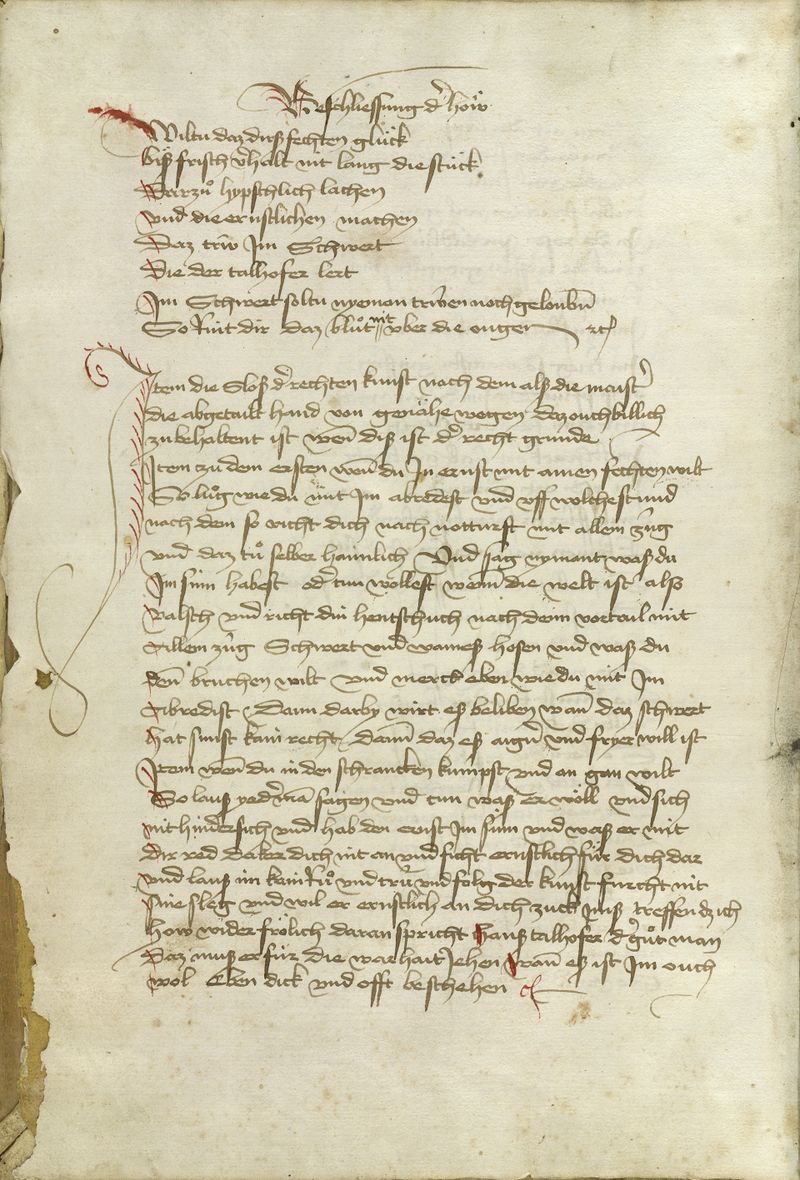 Beschliessung dˀ höw
Wiltu daz diß fechten glück
biß frisch vˀhalt nit lang die stück
Darzuͦ hypschlich lachen
vnd die ernstlichen machen
Daz trüw Im Schwert
Die der talhofer lert
Im Schwert soltu nyeman trüwen noch gelouben
So Rint dir daz bluͦt nit vber die ougen zc
Item die Sloß dˀ rechten kunst nach dem alß die maistˀ
die abgetailt hand von genähe wegen daz ouch billich
zu behaltent ist wen̄ diß ist dˀ recht grunde
Item zu dem ersten wen̄ du In ernst mit ainem fechten wilt
So luͦg wie du mit Im abredest vnd vff wolche stund
nach dem so richt dich nach notturft mit allem züg
vnd daz tuͦ selber haimlich Vnd sag nymant waß du
Im sinn habest odˀ tun wollest wenn die welt ist alß
valsch vnd richt din hentschuch nach deim vortail mit
Allem züg Schwert vnd wameß hosen vnd waß du
den̄ bruchen wilt vnd merck eben wie du mit Im
Abredist Dann darby wirt eß beliben wan̄ daz schwert
hat sunst kain recht Dann daz eß aigen vnd fryer will ist
Item wen̄ du in den schrancken kumpst vnd an gon wilt
So lauß yedˀman sagen vnd tun waß er wöll vnd sich
nit hindersich vnd hab den ernst Im sinn vnd waß er mit
dir red da ker dich nit an vnd ficht ernstlich für dich dar
vnd lauß im kein Ruͦ vnd trü vnd folg der kunst furcht nit
sine sleg vnd wil er ernstlich an dich zuck Inß treffen dz ich
how wider frölich daran spricht Hanß talhofer dˀ guͦt man
Daz muß er für die warhait Jehen wan̄ eß ist Im ouch
wol eben dick vnd offt beschehen